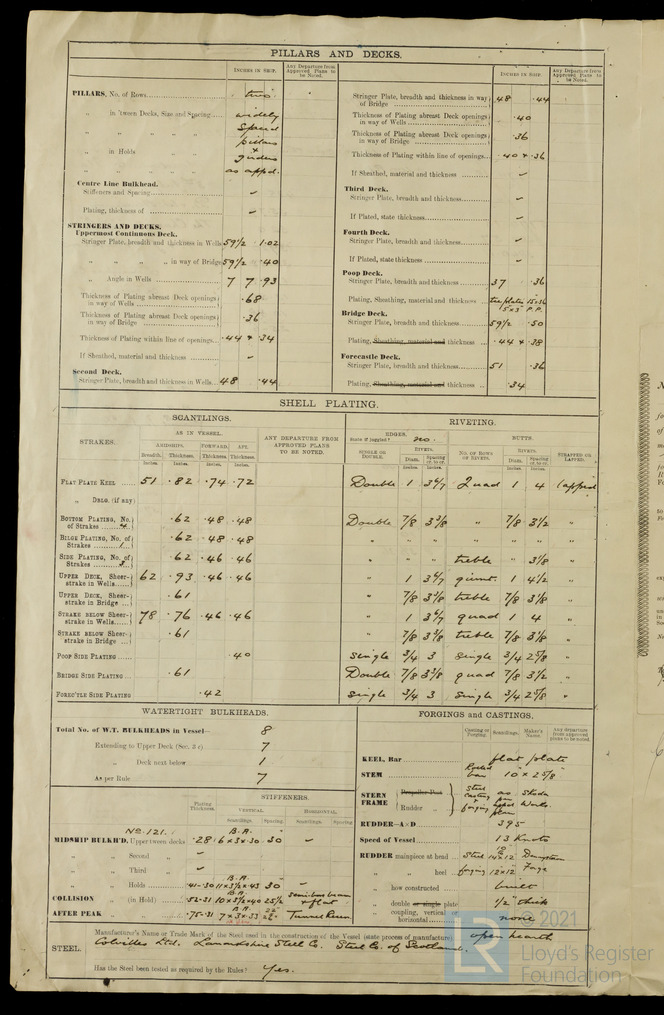 PILLARS AND DECKS.
INCHES IN SHIP.
Any Departure from Approved Plans to be Noted.
PILLARS, No. of Rows two
„ in 'tween Decks, Size and Spacing widely
„ „ „ „ spaced
„ „ „ „ pillars
„ in Holds + girders
„ „ „ „ as appd.
Centre Line Bulkhead.
Stiffeners and Spacing –
Plating, thickness of –
STRINGERS AND DECKS.
Uppermost Continuous Deck.
Stringer Plate, breadth and thickness in Wells 59½ 1.02
„ „ „ „ in way of Bridge 59½ .40
„ Angle in Wells 7 7 .93
Thickness of Plating abreast Deck openings in way of Wells .68
Thickness of Plating abreast Deck openings in way of Bridge .36
Thickness of Plating within line of openings .44 + .34
If Sheathed, material and thickness –
Second Deck.
Stringer Plate, breadth and thickness in Wells 48 .44
INCHES IN SHIP.
Any Departure from Approved Plans to be Noted.
Stringer Plate, breadth and thickness in way of Bridge 48 .44
Thickness of Plating abreast Deck openings in way of Wells .40
Thickness of Plating abreast Deck openings in way of Bridge .36
Thickness of Plating within line of openings .40 + .36
If Sheathed, material and thickness –
Third Deck.
Stringer Plate, breadth and thickness –
If Plated, state thickness –
Fourth Deck.
Stringer Plate, breadth and thickness –
If Plated, state thickness –
Poop Deck.
Stringer Plate, breadth and thickness 37 .36
Plating, Sheathing, material and thickness tie plates 15×.36
5×3 P.P.
Bridge Deck.
Stringer Plate, breadth and thickness 59½ .50
Plating, Sheathing, material and thickness .44 + .38
Forecastle Deck.
Stringer Plate, breadth and thickness 51 .36
Plating, Sheathing, material and thickness .34
SHELL PLATING.
SCANTLINGS.
RIVETING.
STRAKES.
AS IN VESSEL.
AMIDSHIPS. FORWARD. AFT.
Breadth. Thickness. Thickness. Thickness.
Inches. Inches. Inches. Inches.
ANY DEPARTURE FROM APPROVED PLANS TO BE NOTED.
EDGES.
State if joggled? no.
SINGLE OR DOUBLE.
RIVETS.
Diam. Spacing cr. to cr.
Inches. Inches.
BUTTS.
NO. OF ROWS OF RIVETS.
RIVETS.
Diam. Spacing cr. to cr.
Inches. Inches.
STRAPPED OR LAPPED.
FLAT PLATE KEEL 51 .82 .74 .72 Double 1 3 6/7 Quad 1 4 lapped
„ DBLG. (if any)
BOTTOM PLATING, No. of Strakes 4 .62 .48 .48 Double 7/8 3 3/8 „ 7/8 3½ „
BILGE PLATING, No. of Strakes 1 .62 .48 .48 „ „ „ „ „ „ „
SIDE PLATING, No. of Strakes 3 .62 .46 .46 „ „ „ treble „ 3 1/8 „
UPPER DECK, Sheerstrake in Wells 62 .93 .46 .46 „ 1 3 6/7 quint. 1 4½ „
UPPER DECK, Sheerstrake in Bridge .61 „ 7/8 3 3/8 treble 7/8 3 1/8 „
STRAKE BELOW Sheerstrake in Wells 78 .76 .46 .46 „ 1 3 6/7 quad 1 4 „
STRAKE BELOW Sheerstrake in Bridge .61 „ 7/8 3 3/8 treble 7/8 3 1/8 „
POOP SIDE PLATING .40 single 3/4 3 single 3/4 2 5/8 „
BRIDGE SIDE PLATING .61 Double 7/8 3 3/8 quad 7/8 3 1/8 „
FOREC'TLE SIDE PLATING .42 single 3/4 3 single 3/4 2 5/8 „
WATERTIGHT BULKHEADS.
Total No. of W.T. BULKHEADS in Vessel— 8
Extending to Upper Deck (Sec. 3 c) 7
„ Deck next below 1
As per Rule 7
Plating Thickness.
STIFFENERS.
VERTICAL.
HORIZONTAL.
Scantlings. Spacing. Scantlings. Spacing.
No. 121. B.A.
MIDSHIP BULKH'D, Upper tween decks .28 6×3×.30 30 –
„ „ Second „ –
„ „ Third „ – B.A.
„ „ Holds .41-.30 11×3½×.43 30 –
COLLISION „ (in Hold) .52-.31 B.A. 10×3½×.40 25½ semi box beam + flat
AFTER PEAK „ „ .75-.31 B.A. 7×3×.33 Tunnel Recess
FORGINGS and CASTINGS.
Casting or Forging. Scantlings. Maker's Name. Any departure from approved plans to be noted.
KEEL, Bar flat plate
STEM Rolled bar 10 × 2 5/8
STERN FRAME { Propeller Post
Rudder „ } Steel casting + forging as Skoda per appd. Works. plan
RUDDER—A×D 395
Speed of Vessel 13 Knots
RUDDER mainpiece at head Steel 14×12
„ „ heel forging 12×12 Forge
„ how constructed built
„ double or single plate ½" thick
„ coupling, vertical or horizontal none
STEEL.
Manufacturer's Name or Trade Mark of the Steel used in the construction of the Vessel (state process of manufacture) open hearth
Colvilles Ltd. Lanarkshire Steel Co. Steel Co. of Scotland.
Has the Steel been tested as required by the Rules? Yes.
© 2021
LR
Lloyd's Register
Foundation